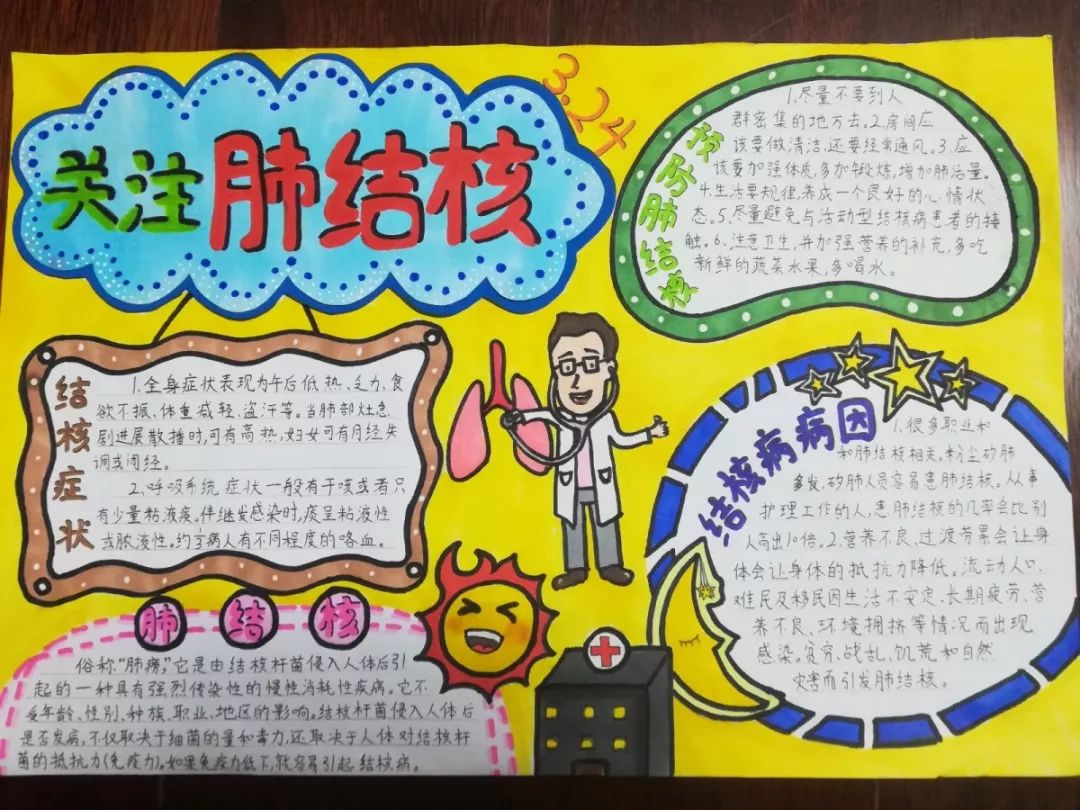 关注肺结核
3.24
预防肺结核
1.尽量不要到人
群密集的地方去。2.房间应
该要做清洁,还要经常通风。3.应
该要加强体质,多加锻炼,增加肺活量。
4.生活要规律,养成一个良好的心情状
态。5.尽量避免与活动型结核病患者的接
触。6、注意卫生,并加强营养的补充,多吃
新鲜的蔬菜水果,多喝水。
结核症状
1.全身症状表现为午后低热、乏力、食
欲不振、体重减轻、盗汗等。当肺部灶急
剧进展散播时,可有高热,妇女可有月经失
调或闭经。
2、呼吸系统症状一般有干咳或者只
有少量粘液痰。伴继发感染时,痰呈粘液性
或脓液性。约⅓病人有不同程度的咯血。
结核病病因
1.很多职业和
和肺结核相关。粉尘矽肺
多发,矽肺人员容易患肺结核。从事
护理工作的人,患肺结核的几率会比别
人高出10倍。2.营养不良,过渡劳累会让身
体会让身体的抵抗力降低。流动人口、
难民及移民因生活不安定、长期疲劳、营
养不良、环境拥挤等情况而出现
感染。贫穷、战乱、饥荒和自然
灾害而引发肺结核。
肺结核
俗称“肺痨”,它是由结核杆菌侵入人体后引
起的一种具有强烈传染性的慢性消耗性疾病。它不
受年龄、性别、种族、职业、地区的影响。结核杆菌侵入人体后
是否发病,不仅取决于细菌的量和毒力,还取决于人体对结核杆
菌的抵抗力(免疫力)。如果免疫力低下,就容易引起结核病。